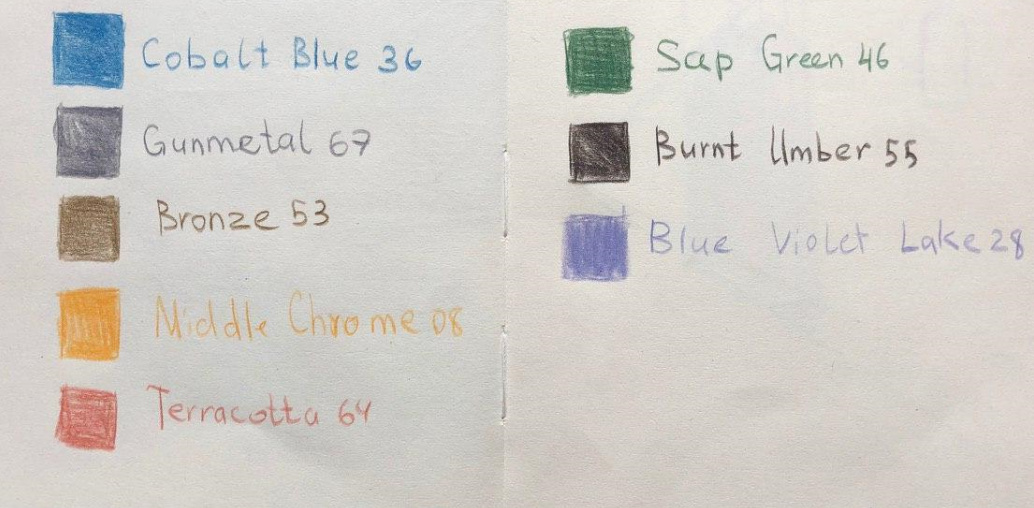 Cobalt Blue 36
Gunmetal 67
Bronze 53
Middle Chrome 08
Terracotta 64
Sap Green 46
Burnt Umber 55
Blue Violet Lake 28